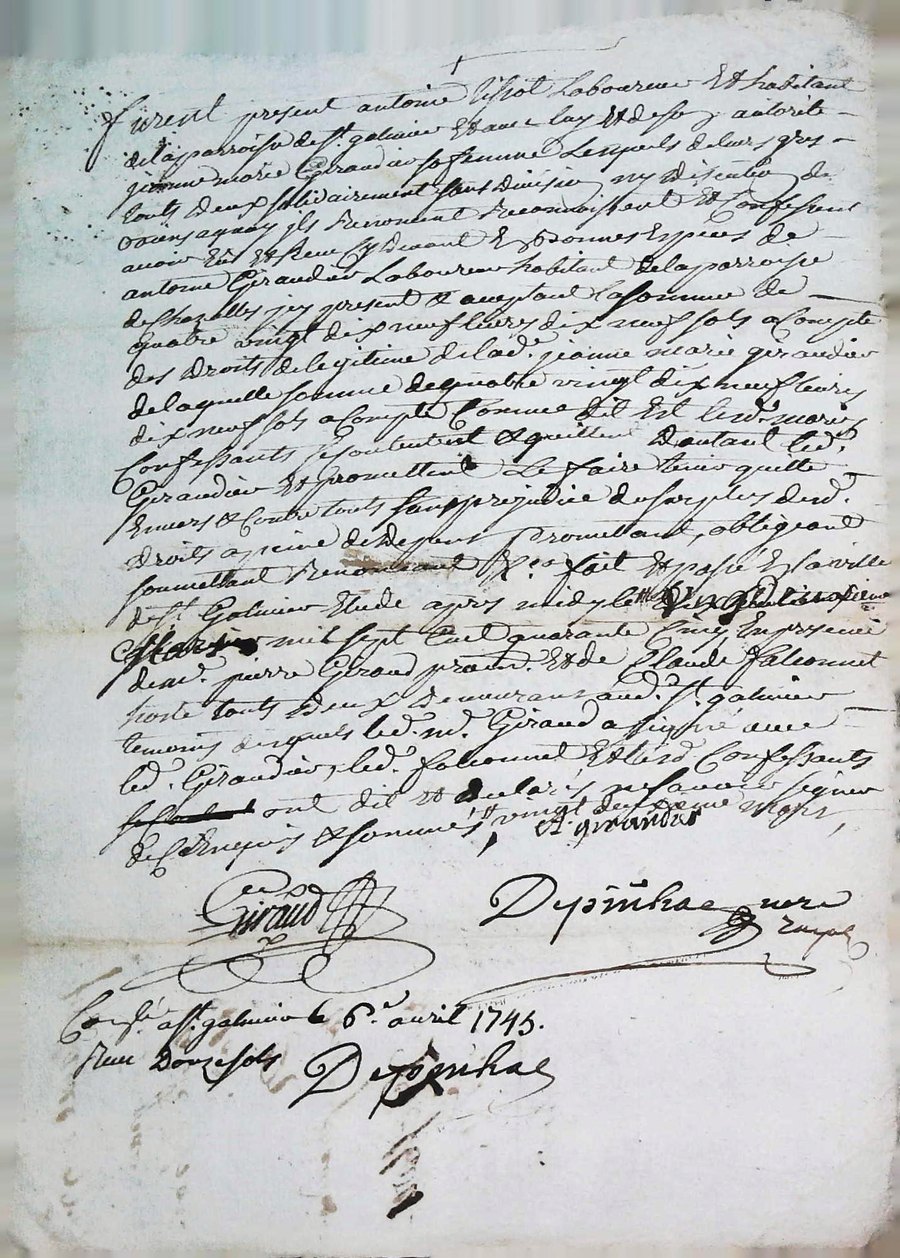 furent present antoine Laboureur Et habitant
de la parroisse de st. galmier Et avec luy Et de son autorité
jeanne marie Girandier sa femme Lesquels de leurs gres
touts deux solidairement sans division ny discution de
biens a quoy ils Renoncent Reconnoissent Et Confessent
avoir Eu Et Receu Cy devant En bonnes Especes de
antoine Girandier Laboureur habitant de la parroisse
de Chazelles jcy present Et acceptant la somme de
quatre vingt dix neuf livres dix neuf sols a Compte
des Droits de legitime de lad. jeanne marie girandier
de laquelle somme de quatre vingt dix neuf livres
dix neuf sols a Compte Comme dit Est lesd. mariés
Confessants se Contentent Et quittent D'autant led.
Girandier Et promettent Le faire tenir quitte
Envers Et Contre touts sans prejudice du surplus desd.
Droits a peine de Depens promettant, obligeant
soumettant Renonceant &c. fait Et passé En la ville
de st. Galmier Etude apres midy le
Mars mil sept Cent quarante Cinq En presence
de me. pierre Giraud Et de Claude falconnet
hoste touts Deux Demeurant aud. st. galmier
temoins desquels led. me. Giraud a signé avec
led. Girandier, led. falconnet Et lesd. Confessants
ont dit Et declaré ne savoir signer
de Ce Enquis Et sommés vingt deuxieme mars,
A girandier
Giraud
Depinhac nore
royal
Conllé a st. galmier le 6e. avril 1745.
Receu Douze sols
Depinhac